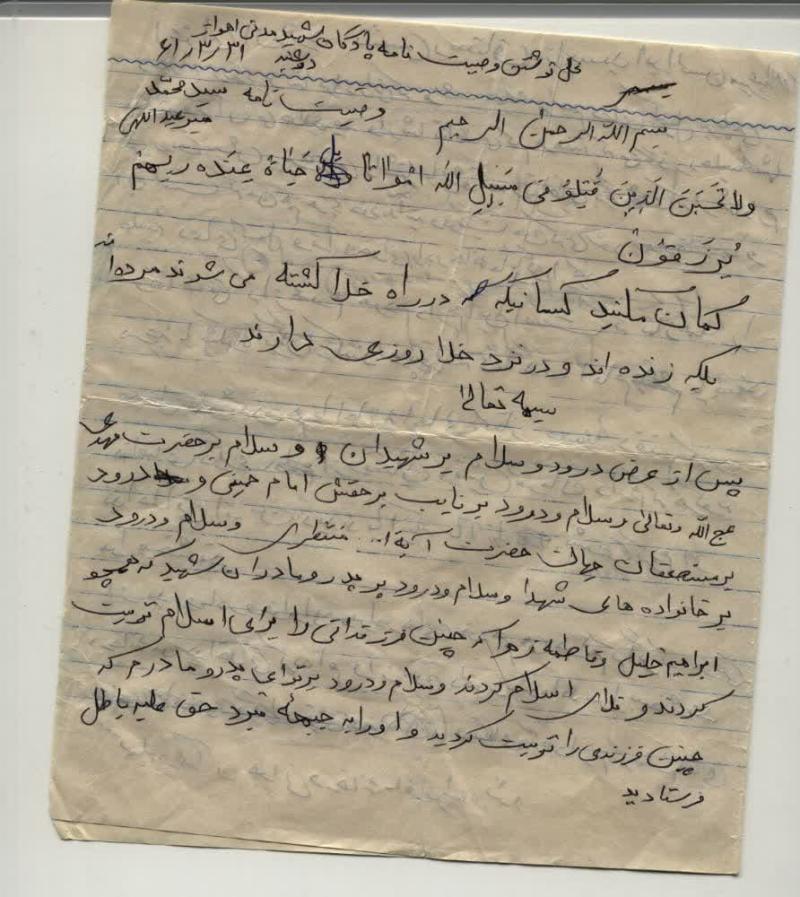 محل نوشتن وصیت نامه پادگان شهید مدنی اهواز
دوشنبه ۶۱/۳/۳۱
وصیت نامه سید محمد
میر عبداللهی
بسم الله الرحمن الرحیم
ولا تَحسَبَنَ الَذینَ قُتِلوُ فی سَبیلِ الله اَمواتا بل حَیاهُ عِندَه رَبِهِم
یُرزَقوُنَ
گمان مکنید کسانیکه در راه خدا کشته می شوند مرده‌اند
بلکه زنده اند و در نزد خدا روزی دارند
بسمه تعالی
پس از عرض درود و سلام بر شهیدان و سلام بر حضرت مهدی
عج الله وتعالی وسلام ودرود بر نایب بر حقش امام خمینی و درود
بر مستضعفان جهان حضرت آیة ا... منتظری وسلام ودرود
بر خانواده های شهدا وسلام ودرود بر پدر ومادران شهید که همچو
ابراهیم خلیل وفاطمه زهرا که چنین فرزندانی را برای اسلام تربیت
کردند و فدای اسلام کردند وسلام ودرود بر تو ای پدر و مادرم که
چنین فرزندی را تربیت کردید و او را به جبهه نبرد حق علیه باطل
فرستادید